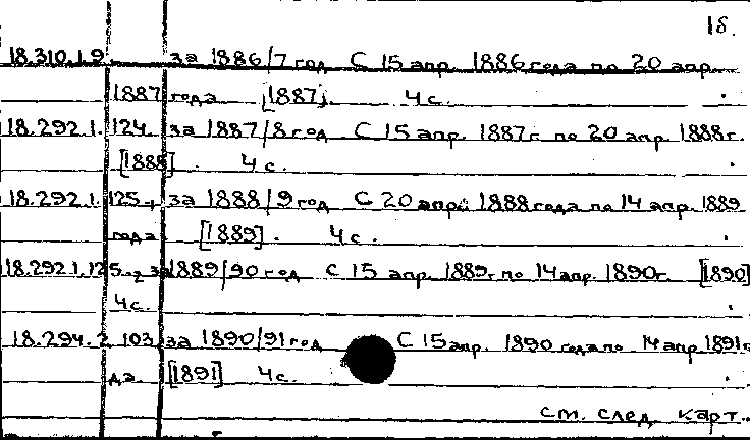 18.
18.310.1.9. за 1886/7 год С 15 апр. 1886 года по 20 апр.
1887 года [1887]. 4 с.
18.292.1.124. за 1887/8 год С 15 апр. 1887 г. по 20 апр. 1888 г.
[1888]. 4 с.
18.292.1.125-1 за 1888/9 год С 20 апр. 1888 года по 14 апр. 1889
года [1889]. 4 с.
18.292.1.125-2 за 1889/90 год С 15 апр. 1889 г. по 14 апр. 1890 г. [1890]
4 с.
18.294.2.103. за 1890/91 год С 15 апр. 1890 года по 14 апр 1891 г
да [1891] 4 с.
см. след. карт.